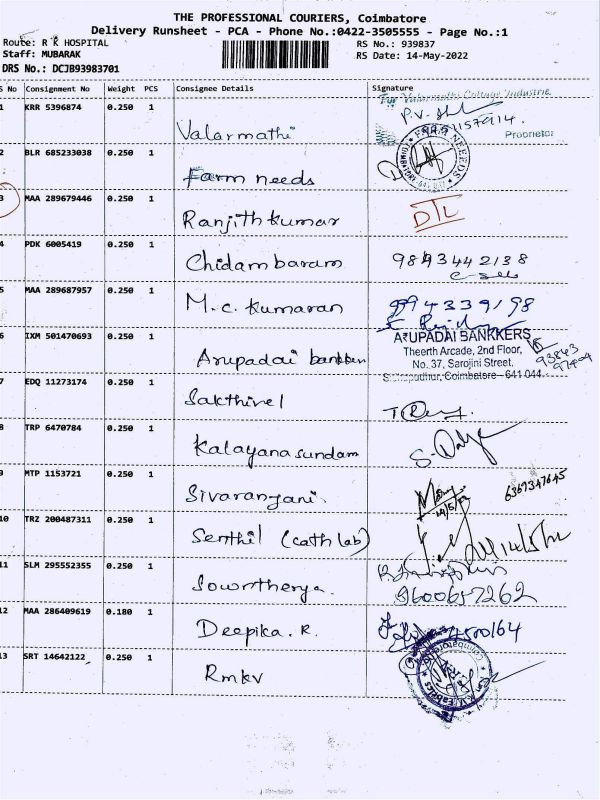 THE PROFESSIONAL COURIERS, Coimbatore
Delivery Runsheet - PCA - Phone No.:0422-3505555 - Page No.:1
Route: R K HOSPITAL
RS No.: 939837
Staff: MUBARAK
RS Date: 14-May-2022
DRS No.: DCJB93983701
S No Consignment No Weight PCS Consignee Details Signature
1 KRR 5396874 0.250 1 Valarmathi
For Valarmathi Cottage Industrie
Proprietor
2 BLR 685233038 0.250 1 Farm needs
3 MAA 289679446 0.250 1 Ranjith kumar DTL
4 PDK 6005419 0.250 1 Chidambaram
5 MAA 289687957 0.250 1 M.C. Kumaran 9994339198
6 IXM 501470693 0.250 1 Arupadai bankken
ARUPADAI BANKKERS
Theerth Arcade, 2nd Floor,
No. 37, Sarojini Street,
Coimbatore - 641 044
7 EDQ 11273174 0.250 1 Sakthivel
8 TRP 6470784 0.250 1 Kalayana sundam
9 MTP 1153721 0.250 1 Sivaranjani. 6369347645
10 TRZ 200487311 0.250 1 Senthil (cath lab)
11 SLM 295552355 0.250 1 Sowntherya. 9600657262
12 MAA 286409619 0.180 1 Deepika. R.
13 SRT 14642122 0.250 1 Rmkv